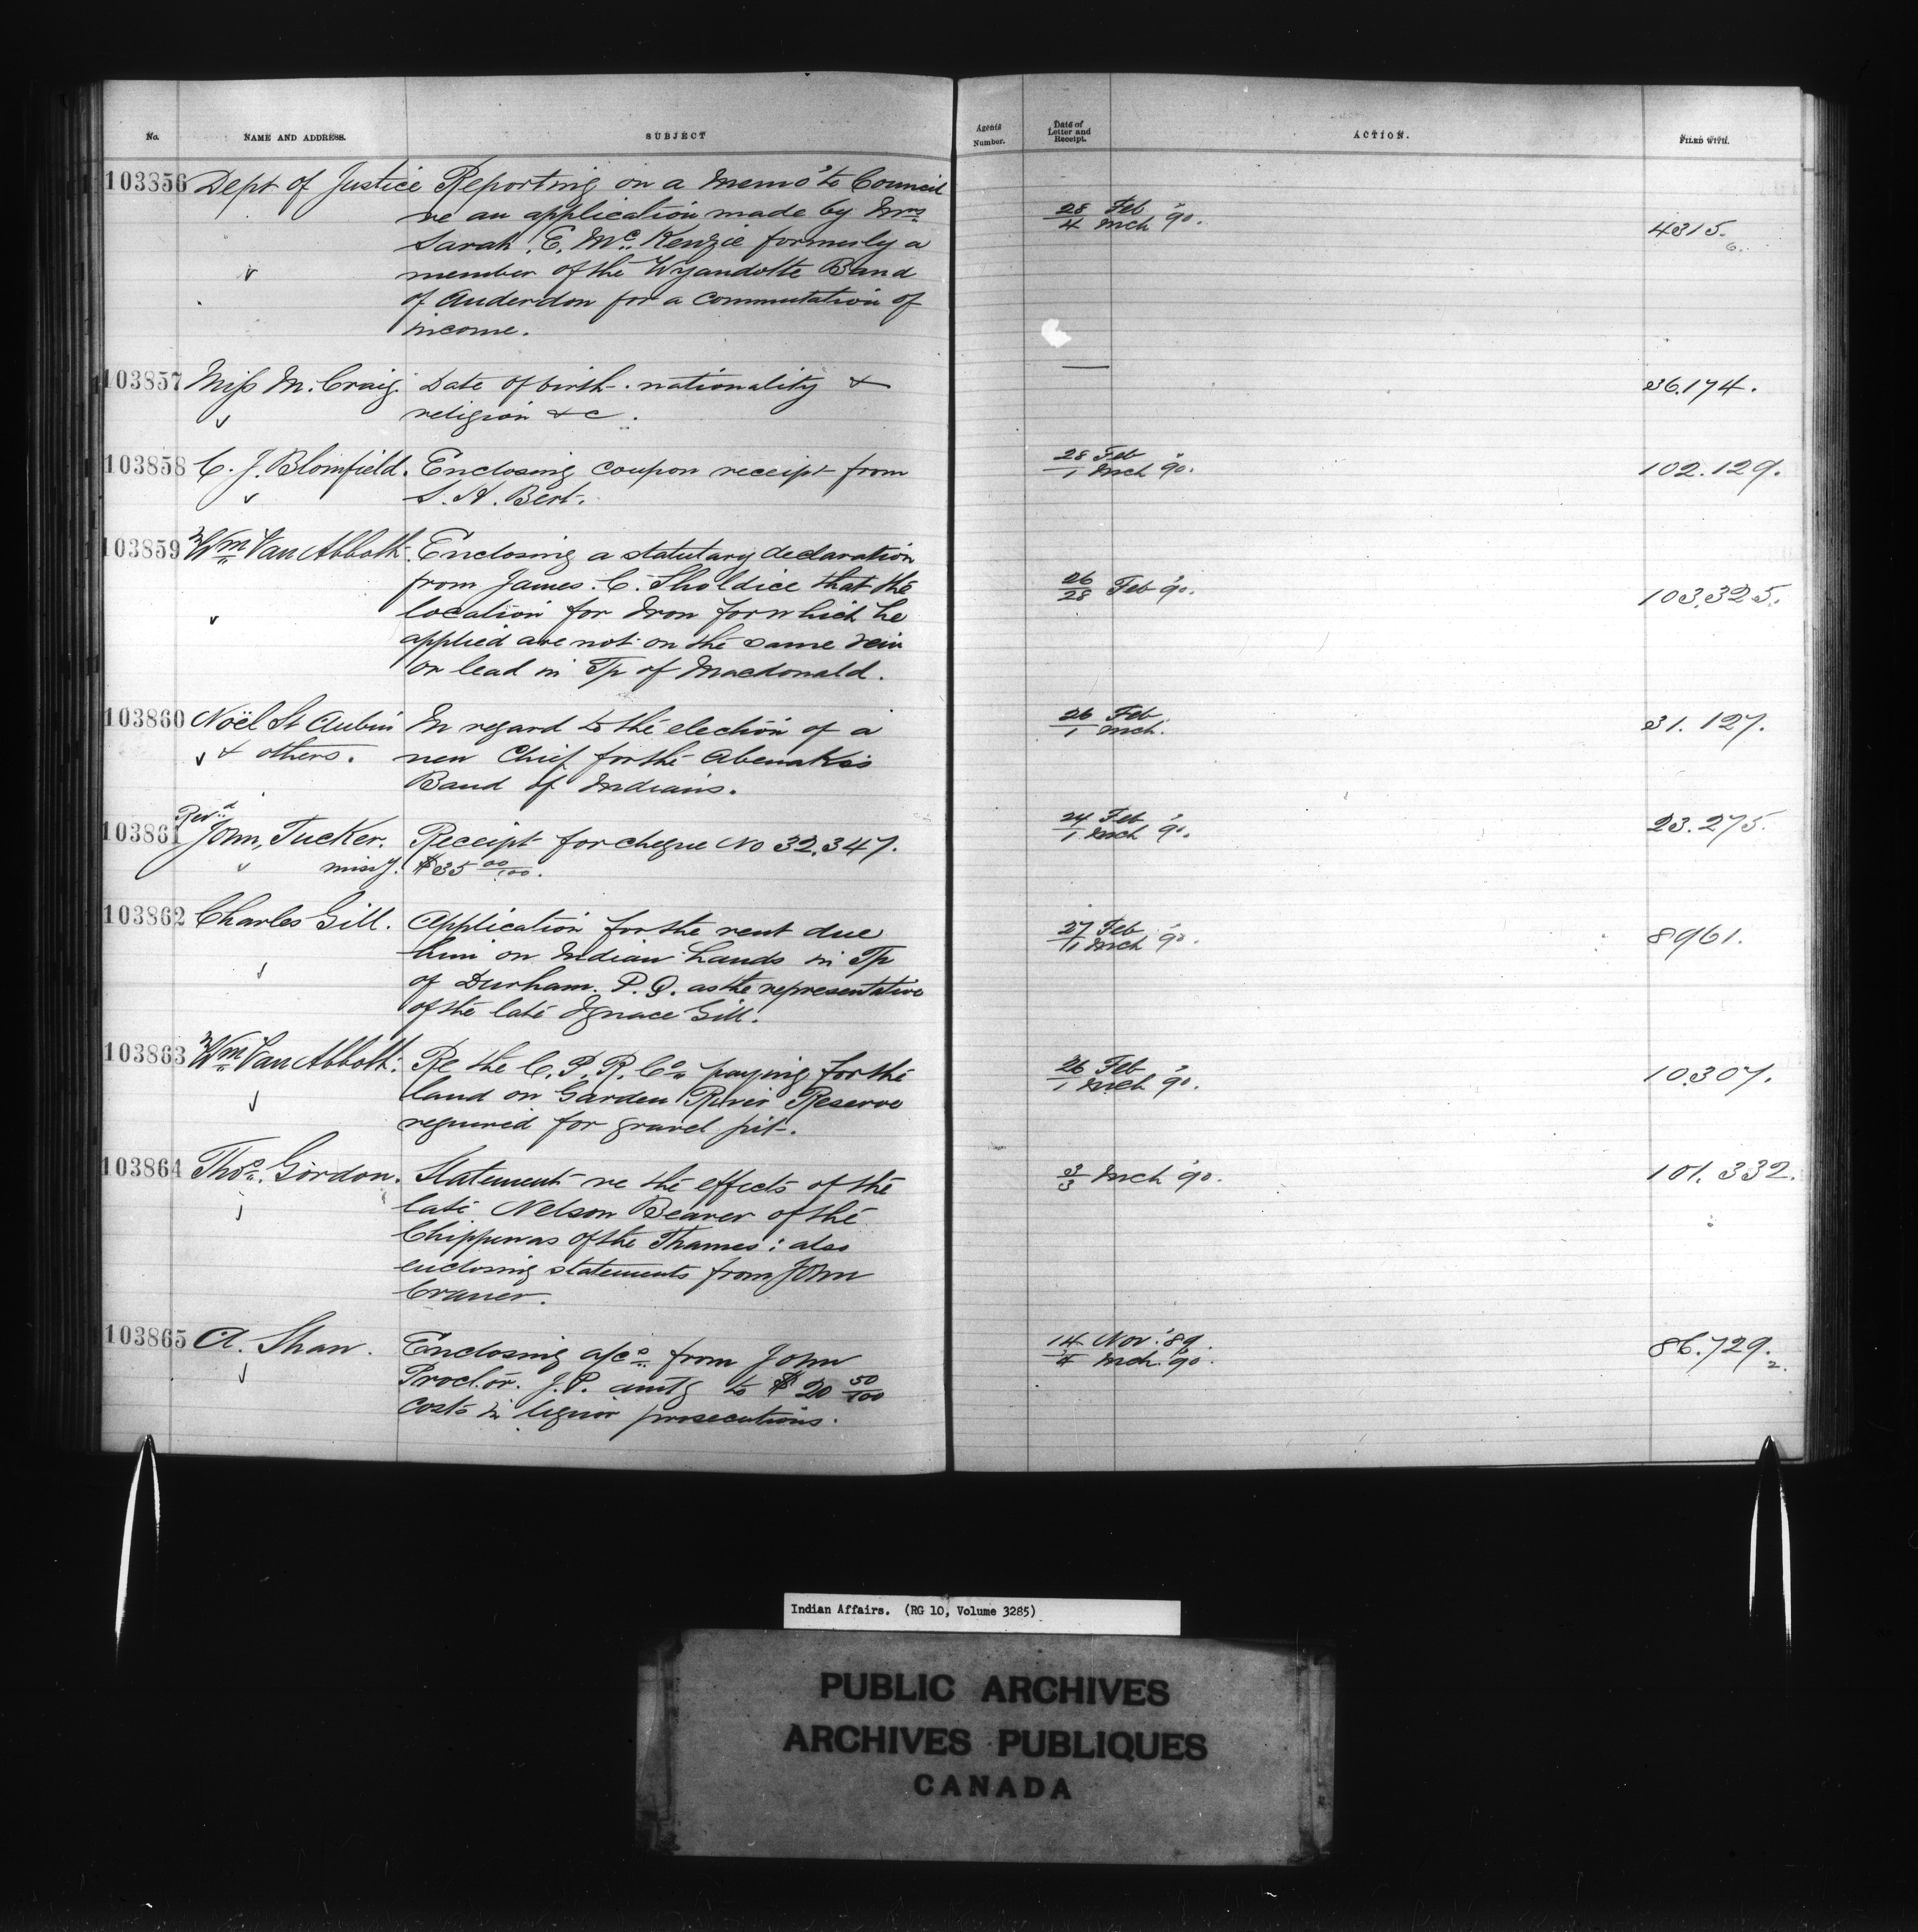 No. NAME AND ADDRESS. SUBJECT Agents Number. Date of Letter and Receipt. ACTION. FILED WITH.
103856 Dept of Justice Reporting on a memo to Council
re an application made by Mrs 28/4 Feb Mch '90. 4315.
Sarah E. McKenzie formerly a 6.
member of the Wyandotte Band
of Anderdon for a commutation of
income.
103857 Miss M. Craig. Date of birth. nationality & — 36.174.
religion &c.
103858 C. J. Blomfield. Enclosing coupon receipt from 28/1 Feb Mch '90. 102.129.
S. H. Bert.
103859 Wm Van Abbott. Enclosing a statutary declaration
from James. C. Sholdice that the 26/28 Feb '90. 103,325.
location for Iron for which he
applied are not on the same vein
or lead in Tp of Macdonald.
103860 Noël St Aubin In regard to the election of a 26/1 Feb. Mch. 31.127.
& others. new Chief for the Abenakis
Band of Indians.
103861 Revd John, Tucker. Receipt for cheque No 32,347. 24/1 Feb Mch '90. 23.275.
missy. $35 00/100.
103862 Charles Gill. Application for the rent due 27/1 Feb Mch '90. 8961.
him on Indian Lands in Tp
of Durham. P.Q. as the representative
of the late Ignace Gill.
103863 Wm Van Abbott. Re the C. P. R. Co. paying for the 26/1 Feb Mch '90. 10.307.
land on Garden River Reserve
required for gravel pit.
103864 Thos. Gordon. Statement re the effects of the 3/3 Mch '90. 101.332.
late Nelson Beaver of the
Chippewas of the Thames: also
enclosing statements from John
103865 A. Shaw. Enclosing a/cs from John 14/4 Nov. '89. Mch. '90. 86.729.
Proctor. J.P. amtg to $20 50/100 2.
costs in liquor prosecutions.
Indian Affairs. (RG 10, Volume 3285)
PUBLIC ARCHIVES
ARCHIVES PUBLIQUES
CANADA